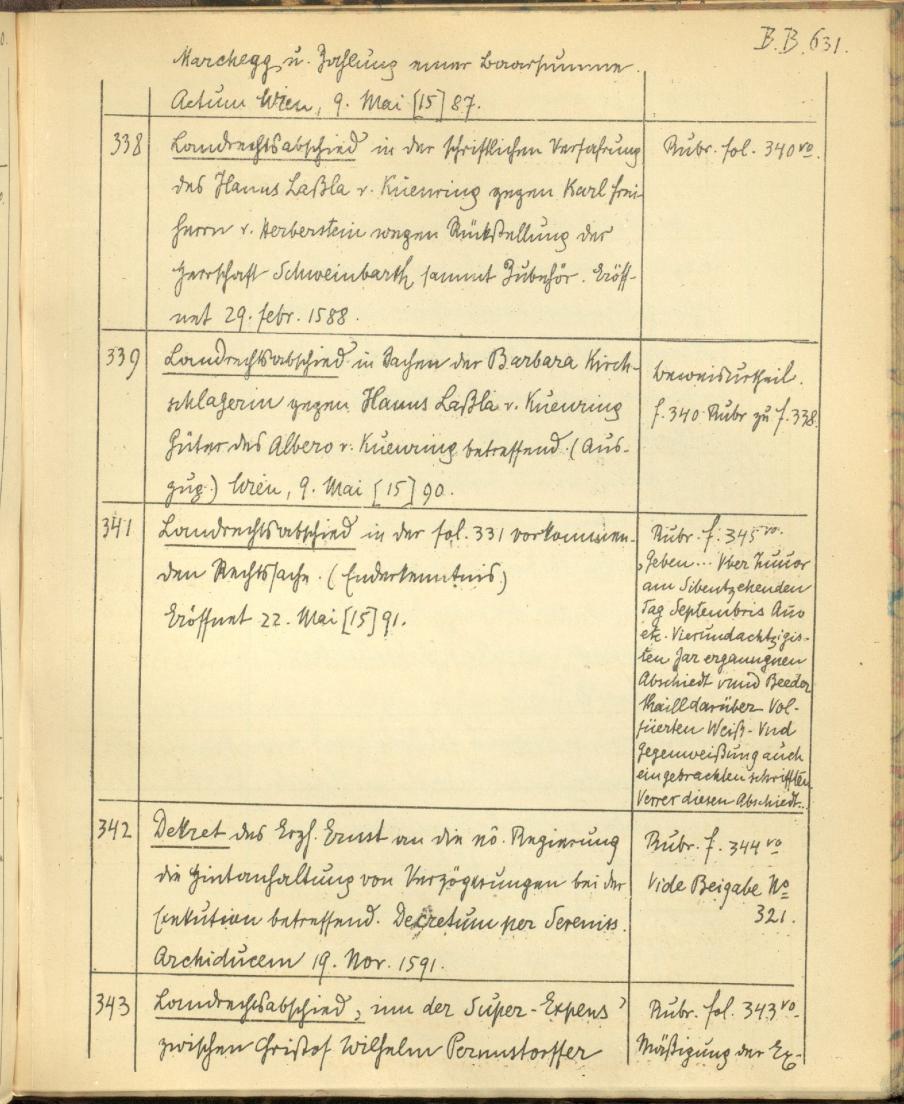 B.B. 631.
Marchegg u. Zahlung einer Baarsumme.
Actum Wien, 9. Mai [15]87.
338
Landrechtsabschied in der schriftlichen Verfahrung
des Hanns Laßla v. Kuenring gegen Karl Frei-
herrn v. Herberstein wegen Rückstellung der
Herrschaft Schweinbarth sammt Zubehör. Eröff-
net 29. Febr. 1588.
Rubr. fol. 340 vo.
339
Landrechtsabschied in Sachen der Barbara Kirch-
schlagerin gegen Hanns Laßla v. Kuenring
Güter des Albero v. Kuenring betreffend. (Aus-
zug.) Wien, 9. Mai [15]90.
Beweisurtheil.
f. 340 Rubr zu f. 338.
341
Landrechtsabschied in der fol. 331 vorkommen-
den Rechtssache. (Enderkenntnis)
Eröffnet 22. Mai [15]91.
Rubr. f. 345 vo.
„Geben... Vber Zuuor
am Sibentzehenden
Tag Septembris Ano
etc. Vierundachtzigis-
ten Jar ergaungnen
Abschiedt vnnd Beeder
thaill darüber Vol-
füerten Weiß- Vnd
Gegenweißung auch
eingebrachten schrifften
Verrer diesen Abschiedt..
342
Dekret des Erzh. Ernst an die nö. Regierung
die Hintanhaltung von Verzögerungen bei der
Exekution betreffend. Decretum per Sereniss.
Archiducem 19. Nov. 1591.
Rubr. f. 344 vo
Vide Beigabe No
321.
343
Landrechtsabschied, „inn der Super-Expens"
zwischen Christof Wilhelm Pernnstorffer
Rubr. fol. 343 vo.
Mäßigung der Ex-